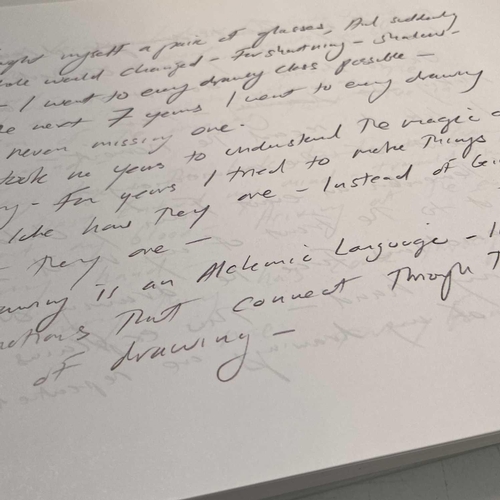 myself a pair of glasses, And suddenly
would changed - Forshortning - shadows -
- I went to every drawing class possible -
next 7 years I went to every drawing
never missing one.
took me years to understand The magic
- For years I tried to make Things
like how They are - Instead of
They are -
is an Alchemic Language -
That connect Through
of drawing -